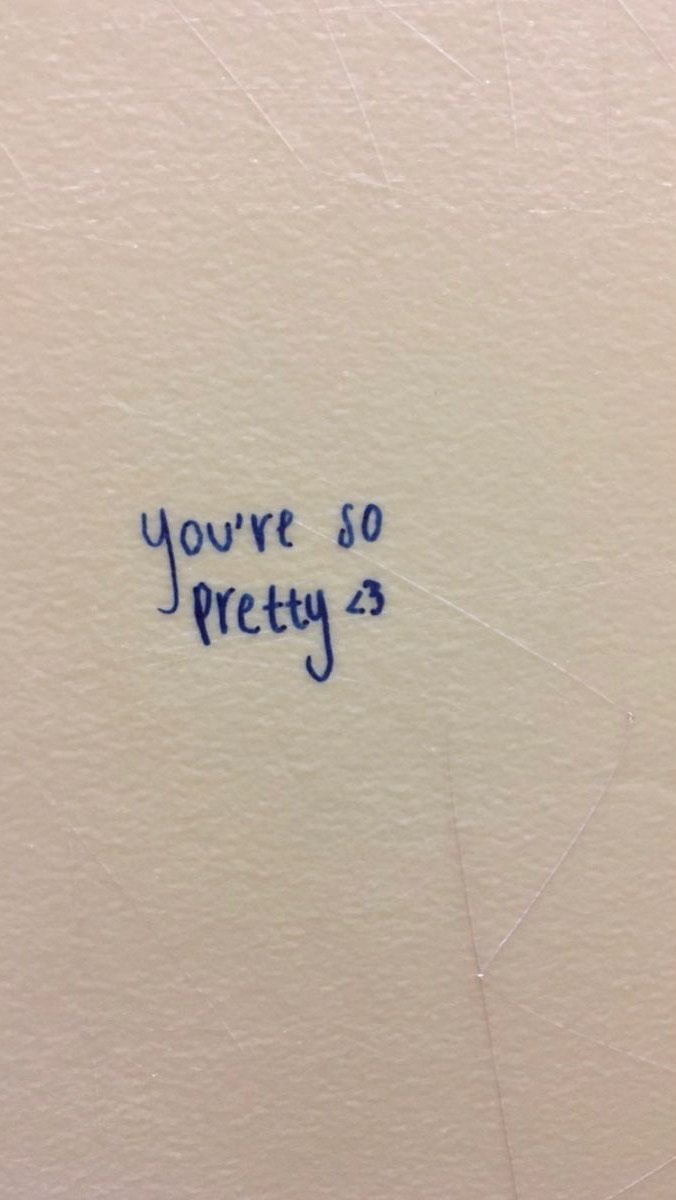 you're so
pretty <3